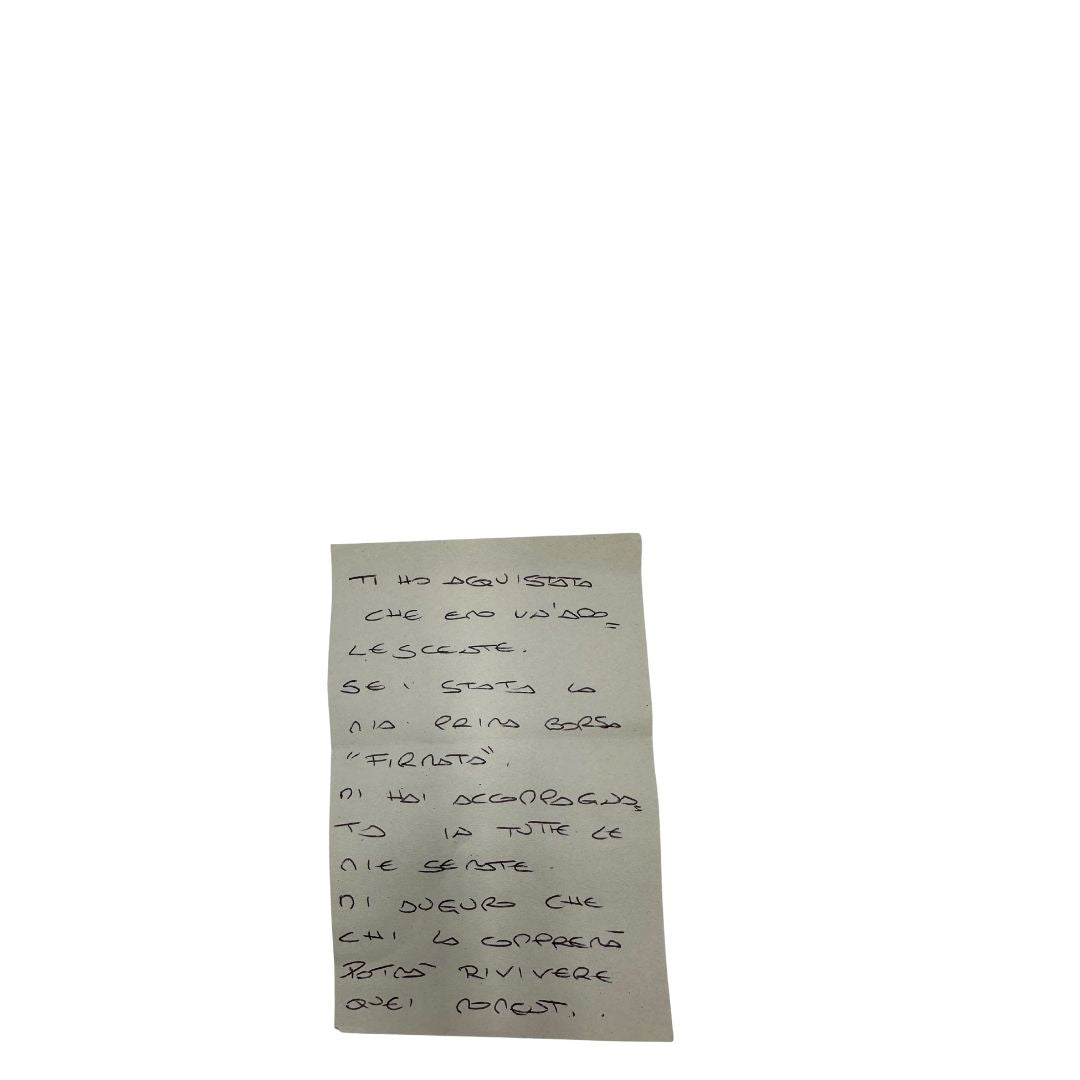 TI HO ACQUISTATA
CHE ERO UN'ADO=
LESCENTE.
SEI STATA LA
MIA PRIMA BORSA
"FIRMATA".
MI HAI ACCOMPAGNA=
TA IN TUTTE LE
MIE SERATE.
MI AUGURO CHE
CHI LA COMPRERÀ
POTRÀ RIVIVERE
QUEI MOMENTI..